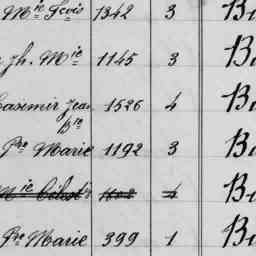 Mie Louis 1342 3 B
Jh. Mie 1145 3 B
Casimir Jean 1526 4 B
Bte
Pre Marie 1192 3 B
Mie 1102 4 B
Pre Marie 399 1 B